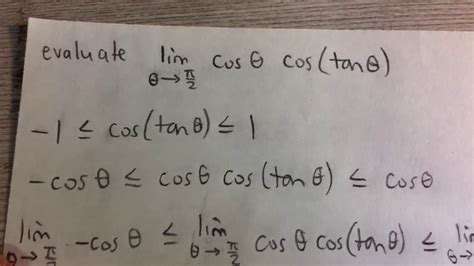 evaluate lim θ→π/2 cos θ cos(tan θ)
-1 ≤ cos(tan θ) ≤ 1
-cos θ ≤ cos θ cos(tan θ) ≤ cos θ
lim θ→π/2 -cos θ ≤ lim θ→π/2 cos θ cos(tan θ) ≤ lim θ→